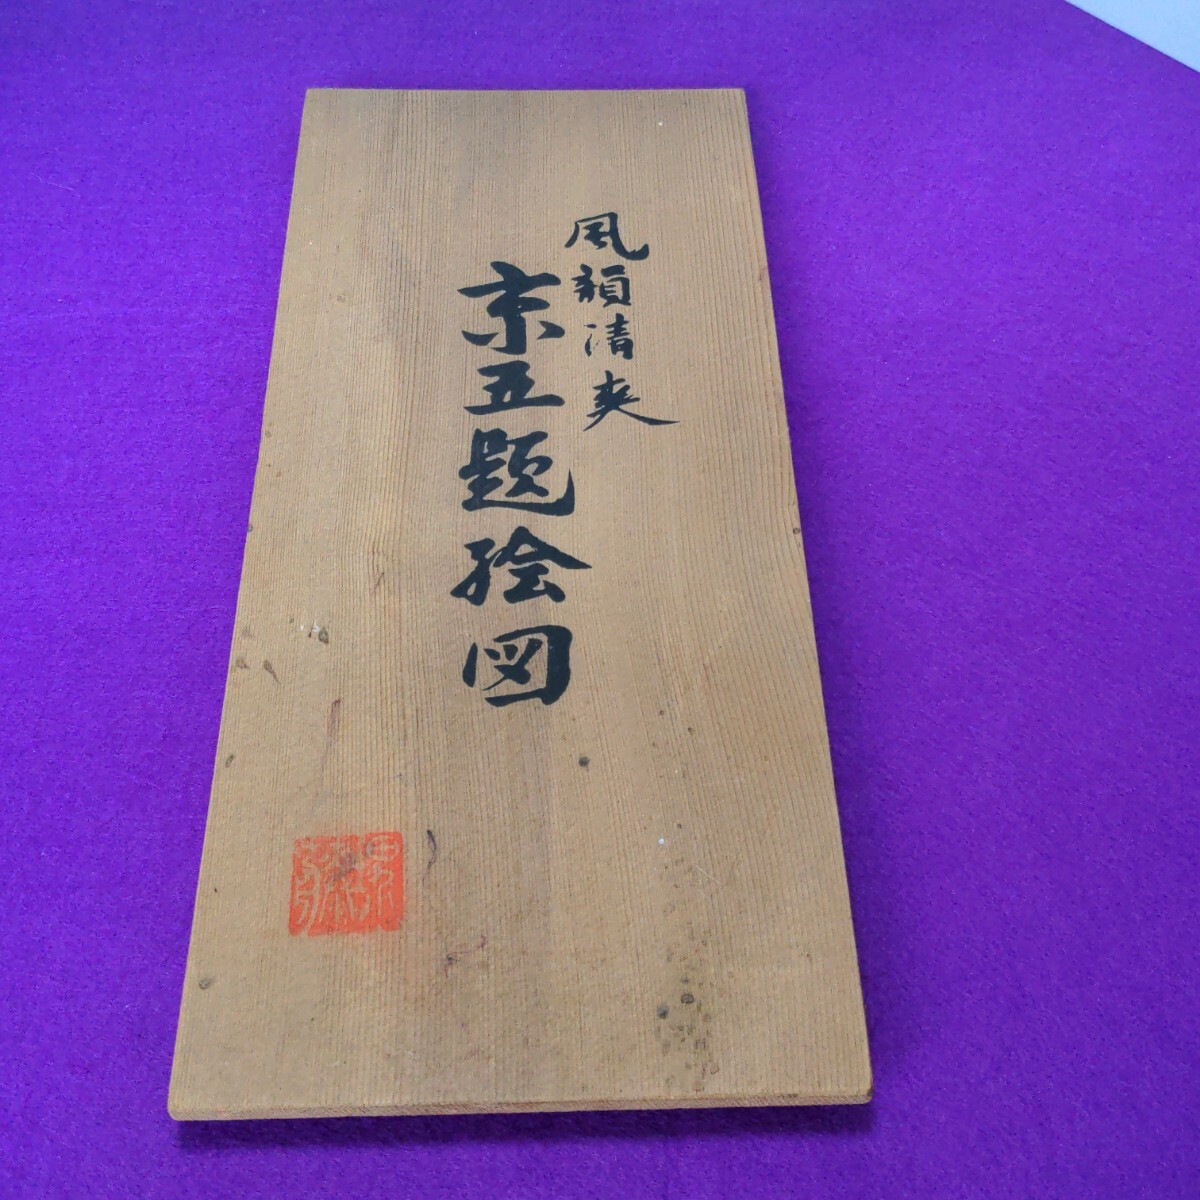 風韻清爽
京五題絵図